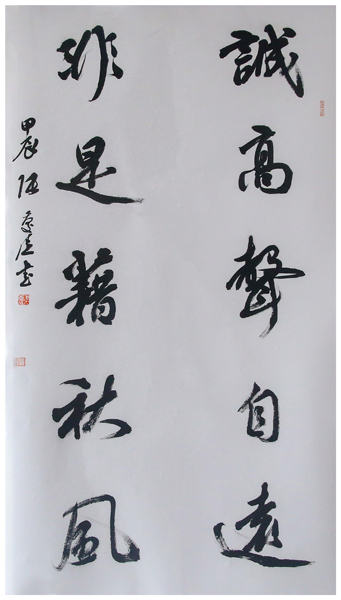 誠高聲自遠
非是藉秋風
甲辰